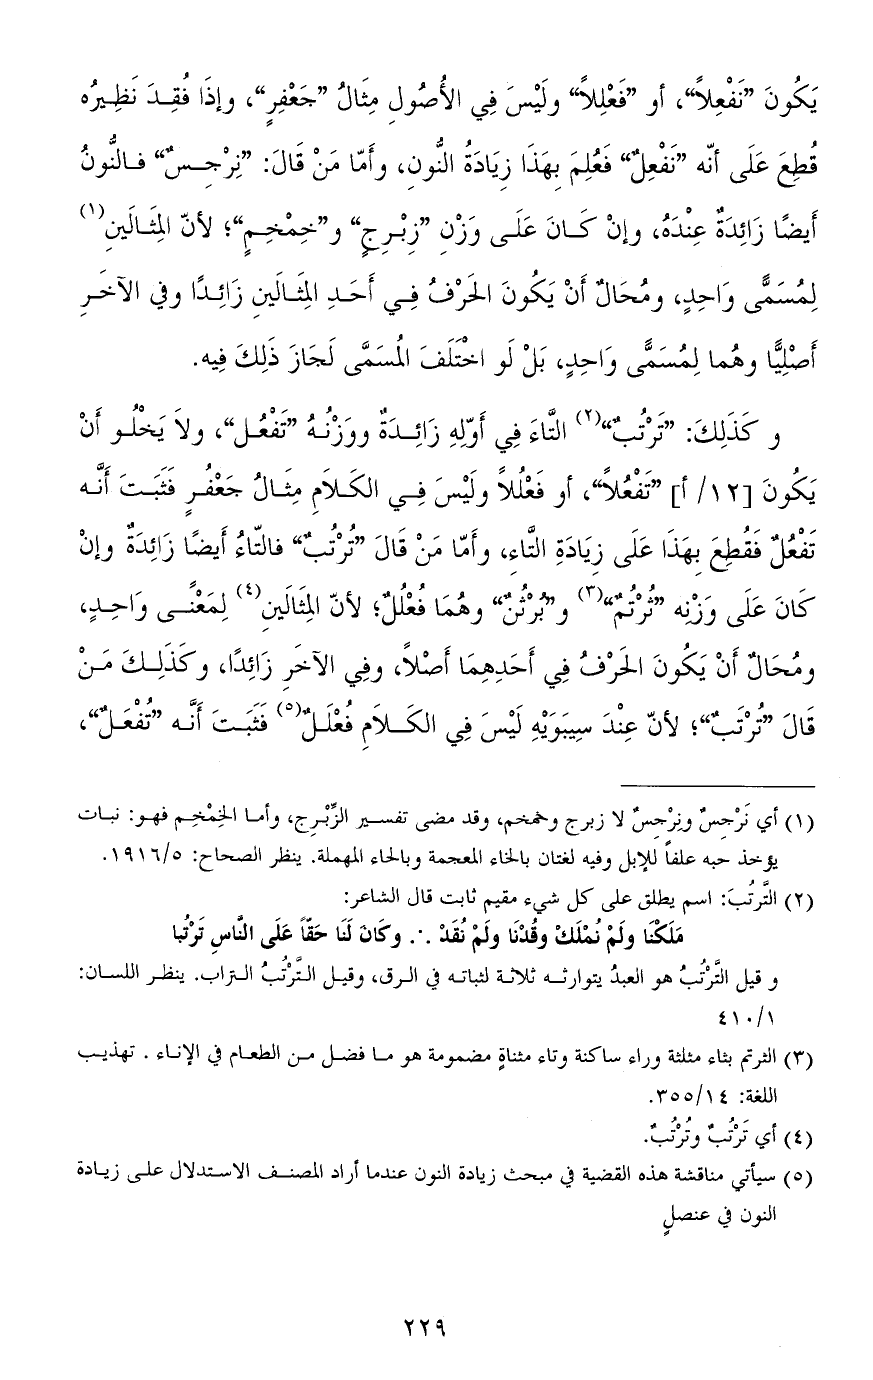 يَكُونَ ”نَفْعِلاً“، أو ”فَعْلِلاً“ ولَيْسَ فِي الأُصُولِ مِثَالُ ”جَعْفِرٍ“، وإذَا فُقِدَ نَظِيرُه
قُطِعَ عَلَى أنّه ”نَفْعِلٌ“ فَعُلِمَ بِهَذَا زِيَادَةُ النُّون، وأمّا مَنْ قَالَ: ”نِرْجِسٌ“ فالنُّونُ
أَيضًا زَائِدَةٌ عِنْدَهُ، وإنْ كَانَ عَلَى وَزْنِ ”زِبْرِجٍ“ و”خِمْخِمٍ“؛ لأنّ المِثَالَينِ(١)
لِمُسَمًّى وَاحِدٍ، ومُحَالٌ أَنْ يَكُونَ الحَرْفُ فِي أَحَدِ المِثَالَينِ زَائِدًا وفي الآخَرِ
أَصْلِيًّا وهُما لِمُسَمًّى وَاحِدٍ، بَلْ لَو اخْتَلَفَ المُسَمَّى لَجَازَ ذَلِكَ فِيه.
و كَذَلِكَ: ”تَرْتُبٌ“(٢) التَّاءَ فِي أَوّلِهِ زَائِدَةٌ ووَزْنُهُ ”تَفْعُل“، ولاَ يَخْلُو أَنْ
يَكُونَ [١٢/ أ] ”تَفْعُلاً“، أو فَعْلُلاً ولَيْسَ فِي الكَلاَمِ مِثَالُ جَعْفُرٍ فَثَبَتَ أَنَّه
تَفْعُلٌ فَقُطِعَ بِهَذَا عَلَى زِيَادَةِ التَّاء، وأمّا مَنْ قَالَ ”تُرْتُبٌ“ فالتّاءُ أَيضًا زَائِدَةٌ وإنْ
كَانَ عَلَى وَزْنِه ”ثُرْتُمٌ“(٣) و”بُرْثُنٌ“ وهُمَا فُعْلُلٌ؛ لأنّ المِثَالَينِ(٤) لِمَعْنًى وَاحِدٍ،
ومُحَالٌ أَنْ يَكُونَ الحَرْفُ فِي أَحَدِهِمَا أَصْلاً، وفِي الآخَرِ زَائِدًا، وكَذَلِكَ مَنْ
قَالَ ”تُرْتَبٌ“؛ لأنّ عِنْدَ سِيبَوَيْهِ لَيْسَ فِي الكَلاَمِ فُعْلَلٌ(٥) فَثَبَتَ أَنَّه ”تُفْعَلٌ“،
(١) أي نَرْجِسٌ ونِرْجِسٌ لا زبرج وخمخم، وقد مضى تفسير الزِّبْرِج، وأما الخِمْخِم فهو: نبات
يؤخذ حبه علفاً للإبل وفيه لغتان بالخاء المعجمة وبالحاء المهملة. ينظر الصحاح: ١٩١٦/٥.
(٢) التَّرتُبَ: اسم يطلق على كل شيء مقيم ثابت قال الشاعر:
مَلَكْنَا ولَمْ نُمْلَكْ وقُدْنَا ولَمْ نُقَدْ ∴ وكَانَ لَنَا حَقّاً عَلَى النَّاسِ تَرْتُبا
و قيل التَّرْتُبُ هو العبدُ يتوارثه ثلاثة لثباته في الرق، وقيل التَّرْتُبُ التراب. ينظر اللسان:
٤١٠/١
(٣) الثرتم بثاء مثلثة وراء ساكنة وتاء مثناةٍ مضمومة هو ما فضل من الطعام في الإناء . تهذيب
اللغة: ٣٥٥/١٤.
(٤) أي تَرْتُبٌ وتُرْتُبٌ.
(٥) سيأتي مناقشة هذه القضية في مبحث زيادة النون عندما أراد المصنف الاستدلال على زيادة
النون في عنصلٍ
٢٢٩